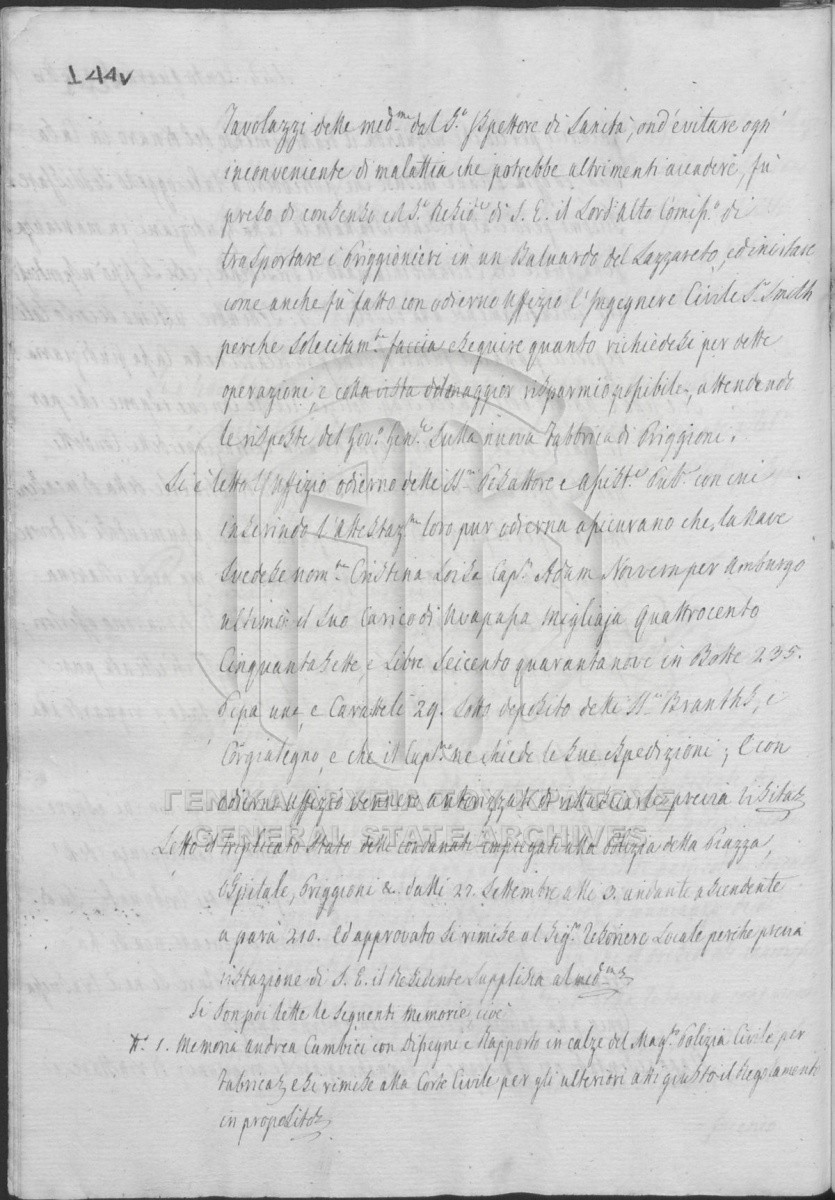 144v
Tavolazzi delle med.me dal S.r Ispettore di Sanità, ond'evitare ogn'
inconveniente di malattia che potrebbe altrimenti accadere, fù
preso di consenso col S.r Resid.te di S. E. il Lord Alto Comiss.o di
trasportare i Priggionieri in un Baluardo del Lazzareto, ed incitare
come anche fù fatto con odierno Uffizio l'Ingegnere Civile S.r Smith
perche solecitam.te faccia eseguire quanto richiedesi per dette
operazioni, e colla vista del maggior risparmio possibile, attendendo
le risposte del Gov.o Gen.le sulla nuova Fabbrica di Priggioni.
Si è letto l'Uffizio odierno delli SS.ri Pesattore e Assist.e Pub.o con cui
inserindo l'Attestaz.ne loro pur odierna assicurano che, la Nave
Svedese nom.ta Cristina Loisa Cap.n Adam per Amburgo
ultimò il suo Carico di Uvapassa migliaja quattrocento
Cinquantasette, e Libre Seicento quarantanove in Botte 235.
Pipa una, e Caratteli 29. Sotto deposito delli SS.ri Branths, e
Corgialegno, e che il Cap.n ne chiede le sue espedizioni; E con
odierno Uffizio vennero autorizzati di rilasciarle, previa Visita
Letto il triplicato Stato delli condanati impiegati alla Polizia della Piazza,
Ospitale, Priggioni &. dalli 27. Settembre alli 3. andante ascendente
a parà 210. Ed approvato si rimise al Sig.r Tesoriere Locale perche previa
vistazione di S. E. il Residente Supplisca al med.mo
Si son poi lette le seguenti Memorie cioè
N.o 1. Memoria Andrea Cambici con Disegni e Rapporto in calze del Mag.to Polizia Civile per
fabricar, e si rimise alla Corte Civile per gli ulteriori atti giusto il Regolamento
in proposito
ΓΕΝΙΚΑ ΑΡΧΕΙΑ ΤΟΥ ΚΡΑΤΟΥΣ
GENERAL STATE ARCHIVES